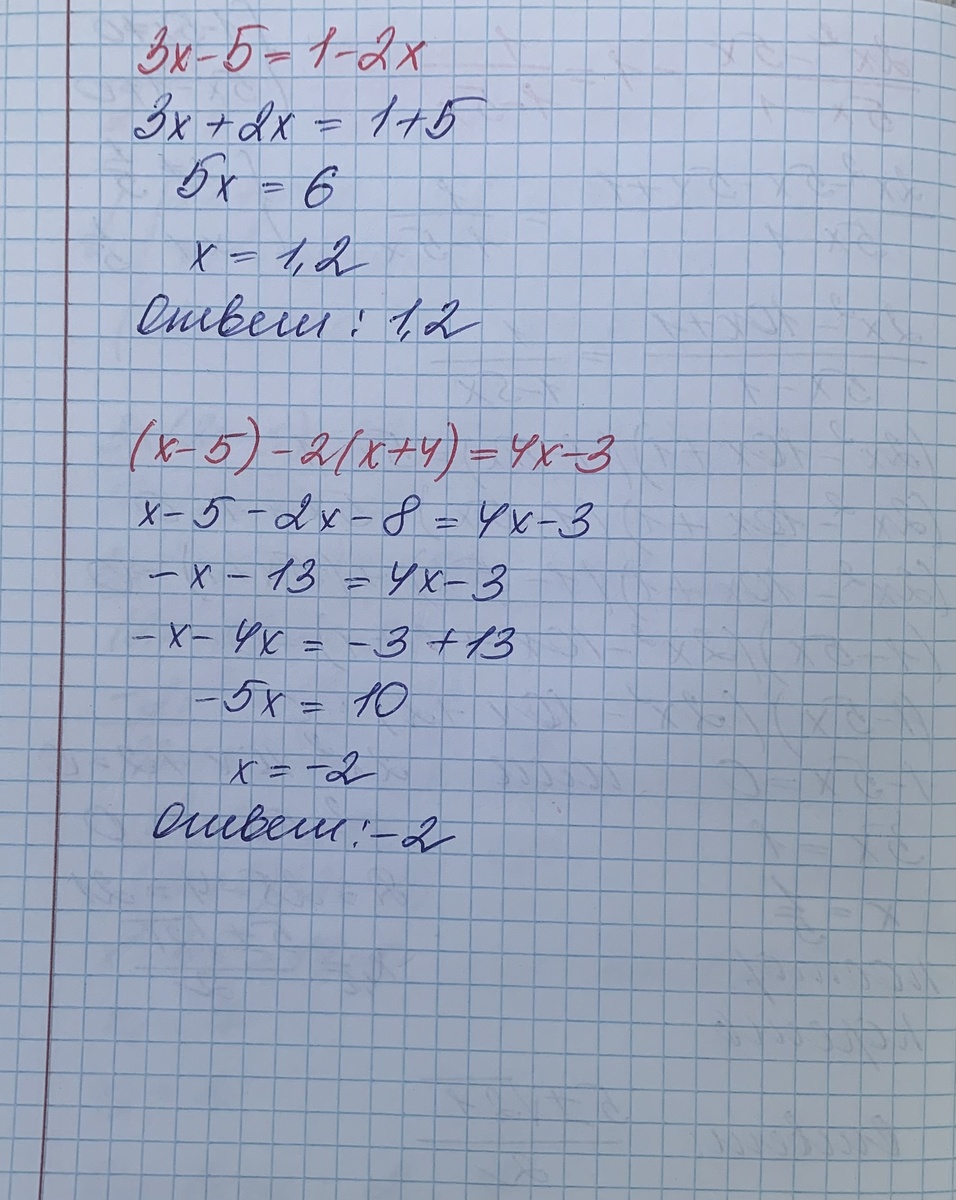 3x-5=1-2x
3x+2x = 1+5
5x = 6
x = 1,2
Ответ: 1,2
(x-5)-2(x+4)=4x-3
x-5-2x-8=4x-3
-x-13=4x-3
-x-4x=-3+13
-5x=10
x=-2
Ответ:-2